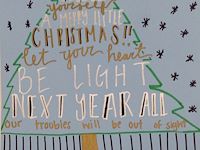 yourself
A MERRY LITTLE
CHRISTMAS!!
let your heart
BE LIGHT
NEXT YEAR ALL
our troubles will be out of sight